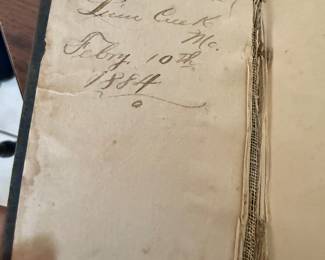 Linn Creek
Mo.
Feby 10th
1884